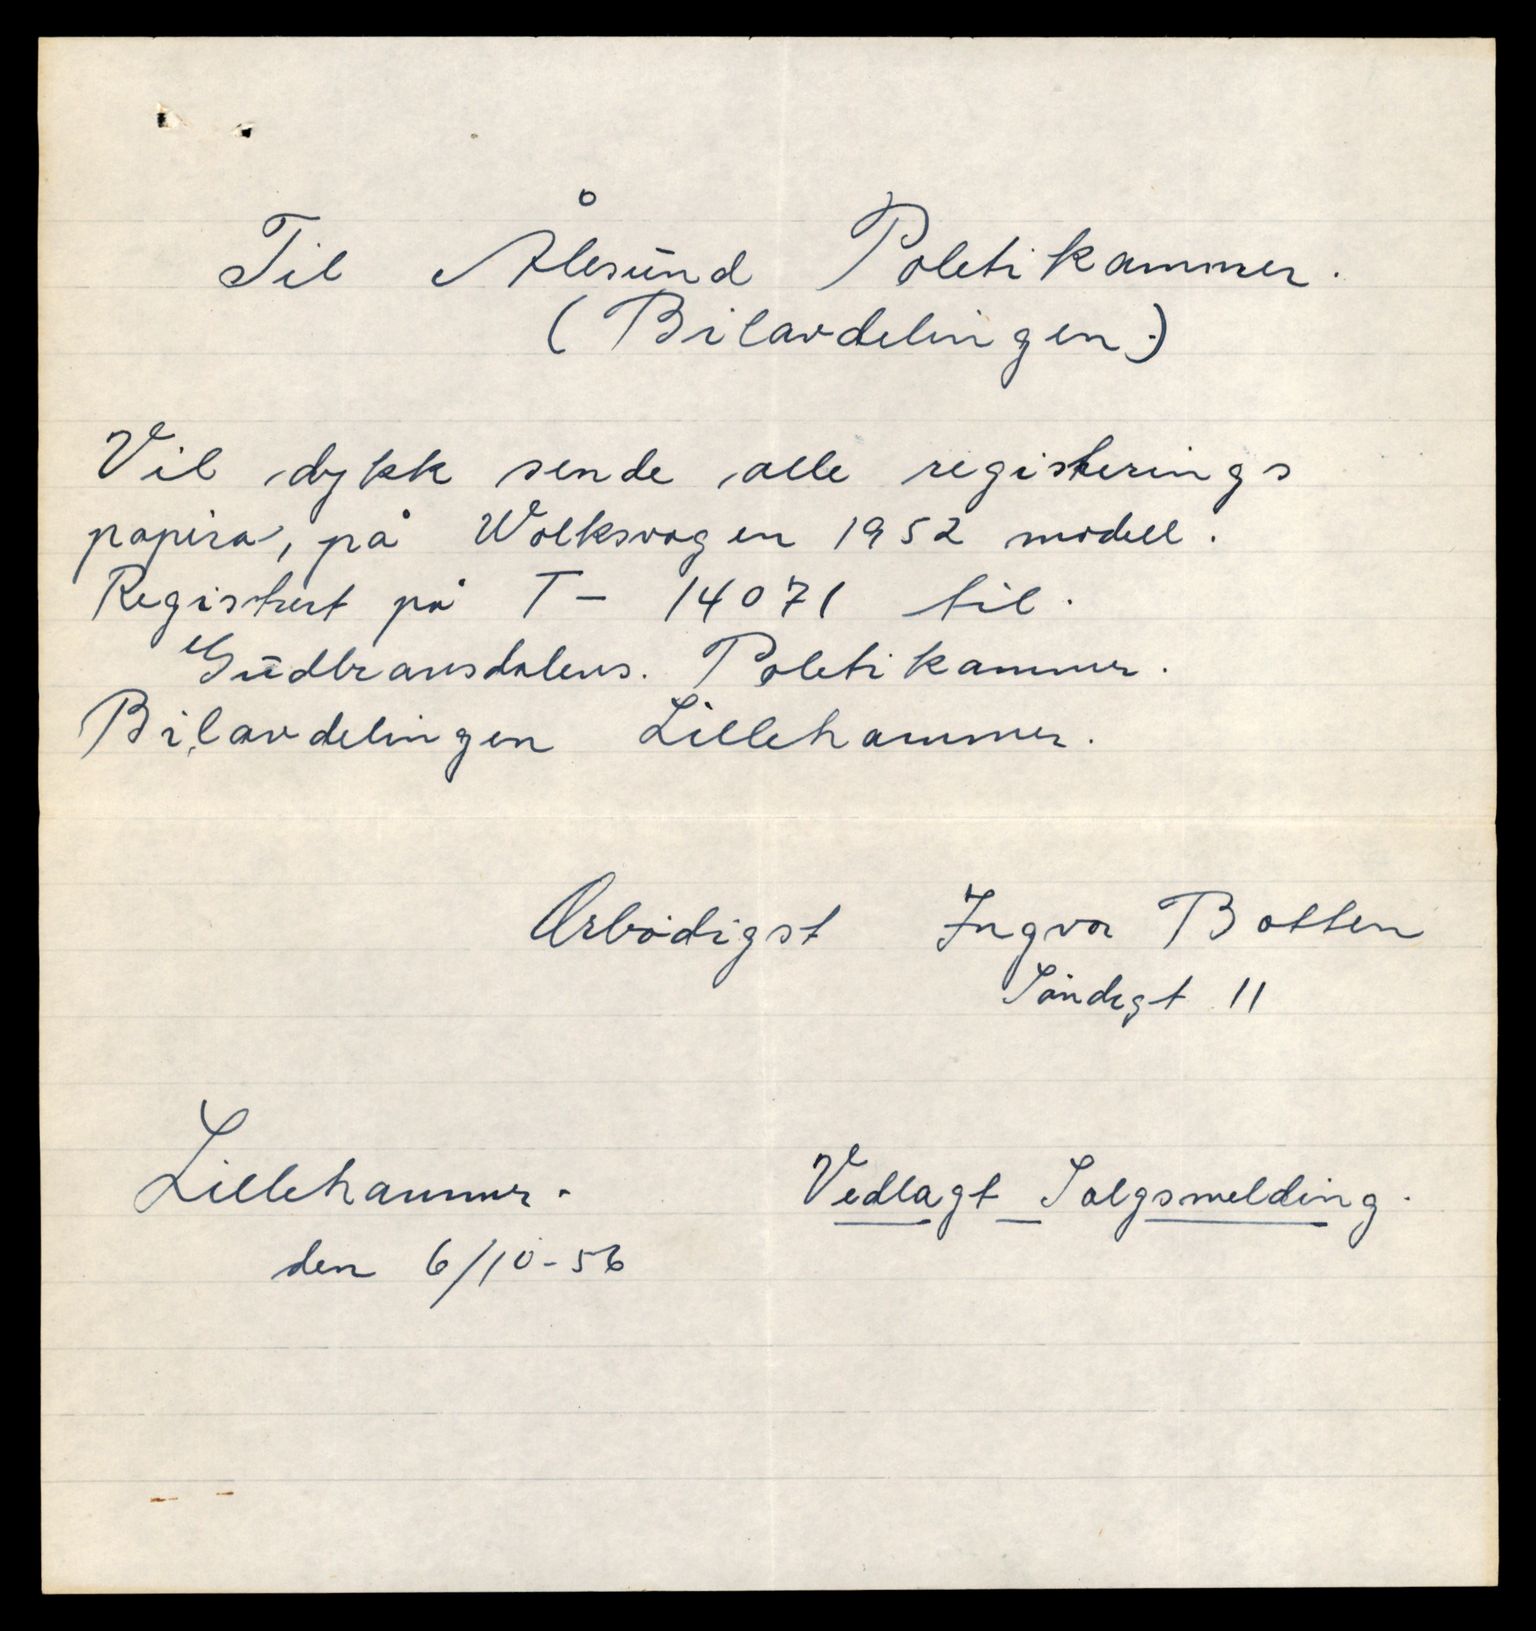 Til Ålesund Poletikammer.
(Bilavdelingen.)
Vil dykk sende alle registerings
papira, på Wolksvagen 1952 modell.
Registert på T- 14071 til.
Gudbransdalens. Poletikammer.
Bilavdelingen Lillehammer.
Ærbødigst Ingvar Botten
11
Lillehammer.
den 6/10-56
Vedlagt Salgsmelding.